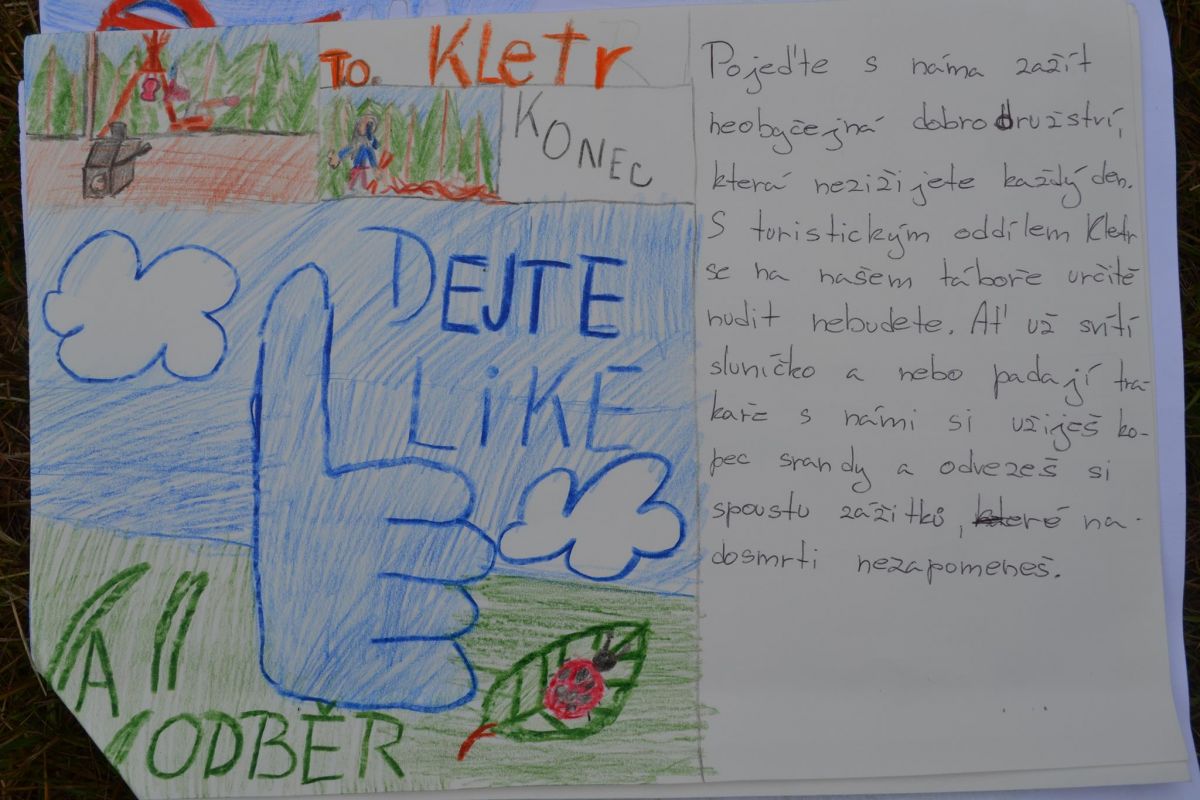 TO. KLetr
KONEC
DEJTE
LiKE
A
ODBĚR
Pojeďte s náma zažít
neobyčejná dobrodružství,
která nezižijete každý den.
S turistickým oddílem Kletr
se na našem táboře určitě
nudit nebudete. Ať už svítí
sluníčko a nebo padají tra-
kaře s námi si užiješ ko-
pec srandy a odvezeš si
spoustu zážitků, které na-
dosmrti nezapomeneš.